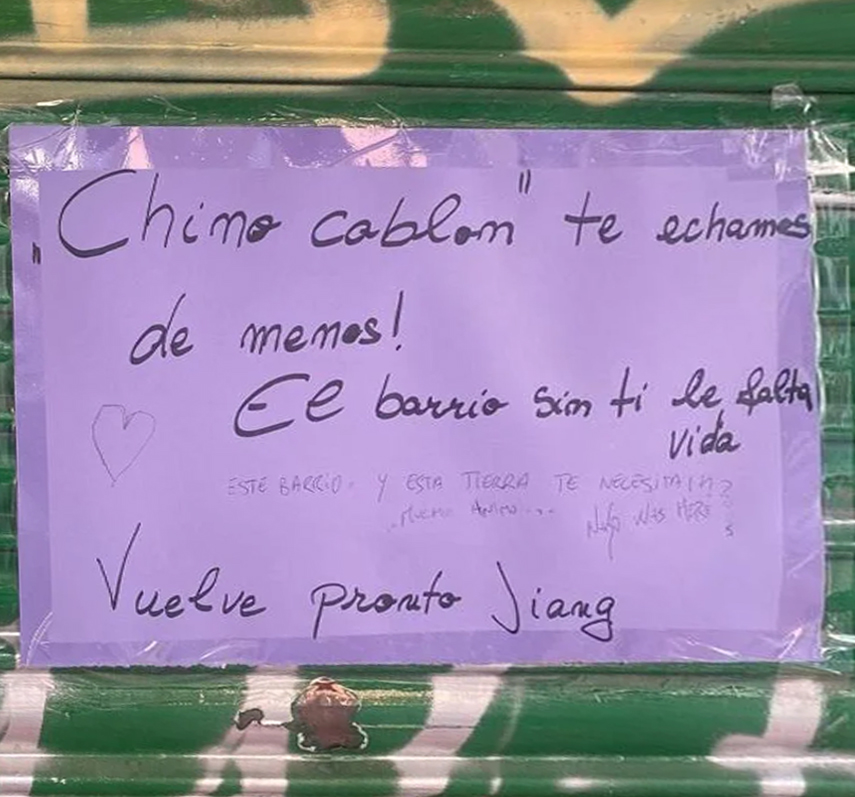 "Chino cablon" te echamos
de menos!
El barrio sin ti le falta
vida
ESTE BARRIO. Y ESTA TIERRA TE NECESITA
MUCHO ANIMO...
WAS HERE
Vuelve pronto Jiang